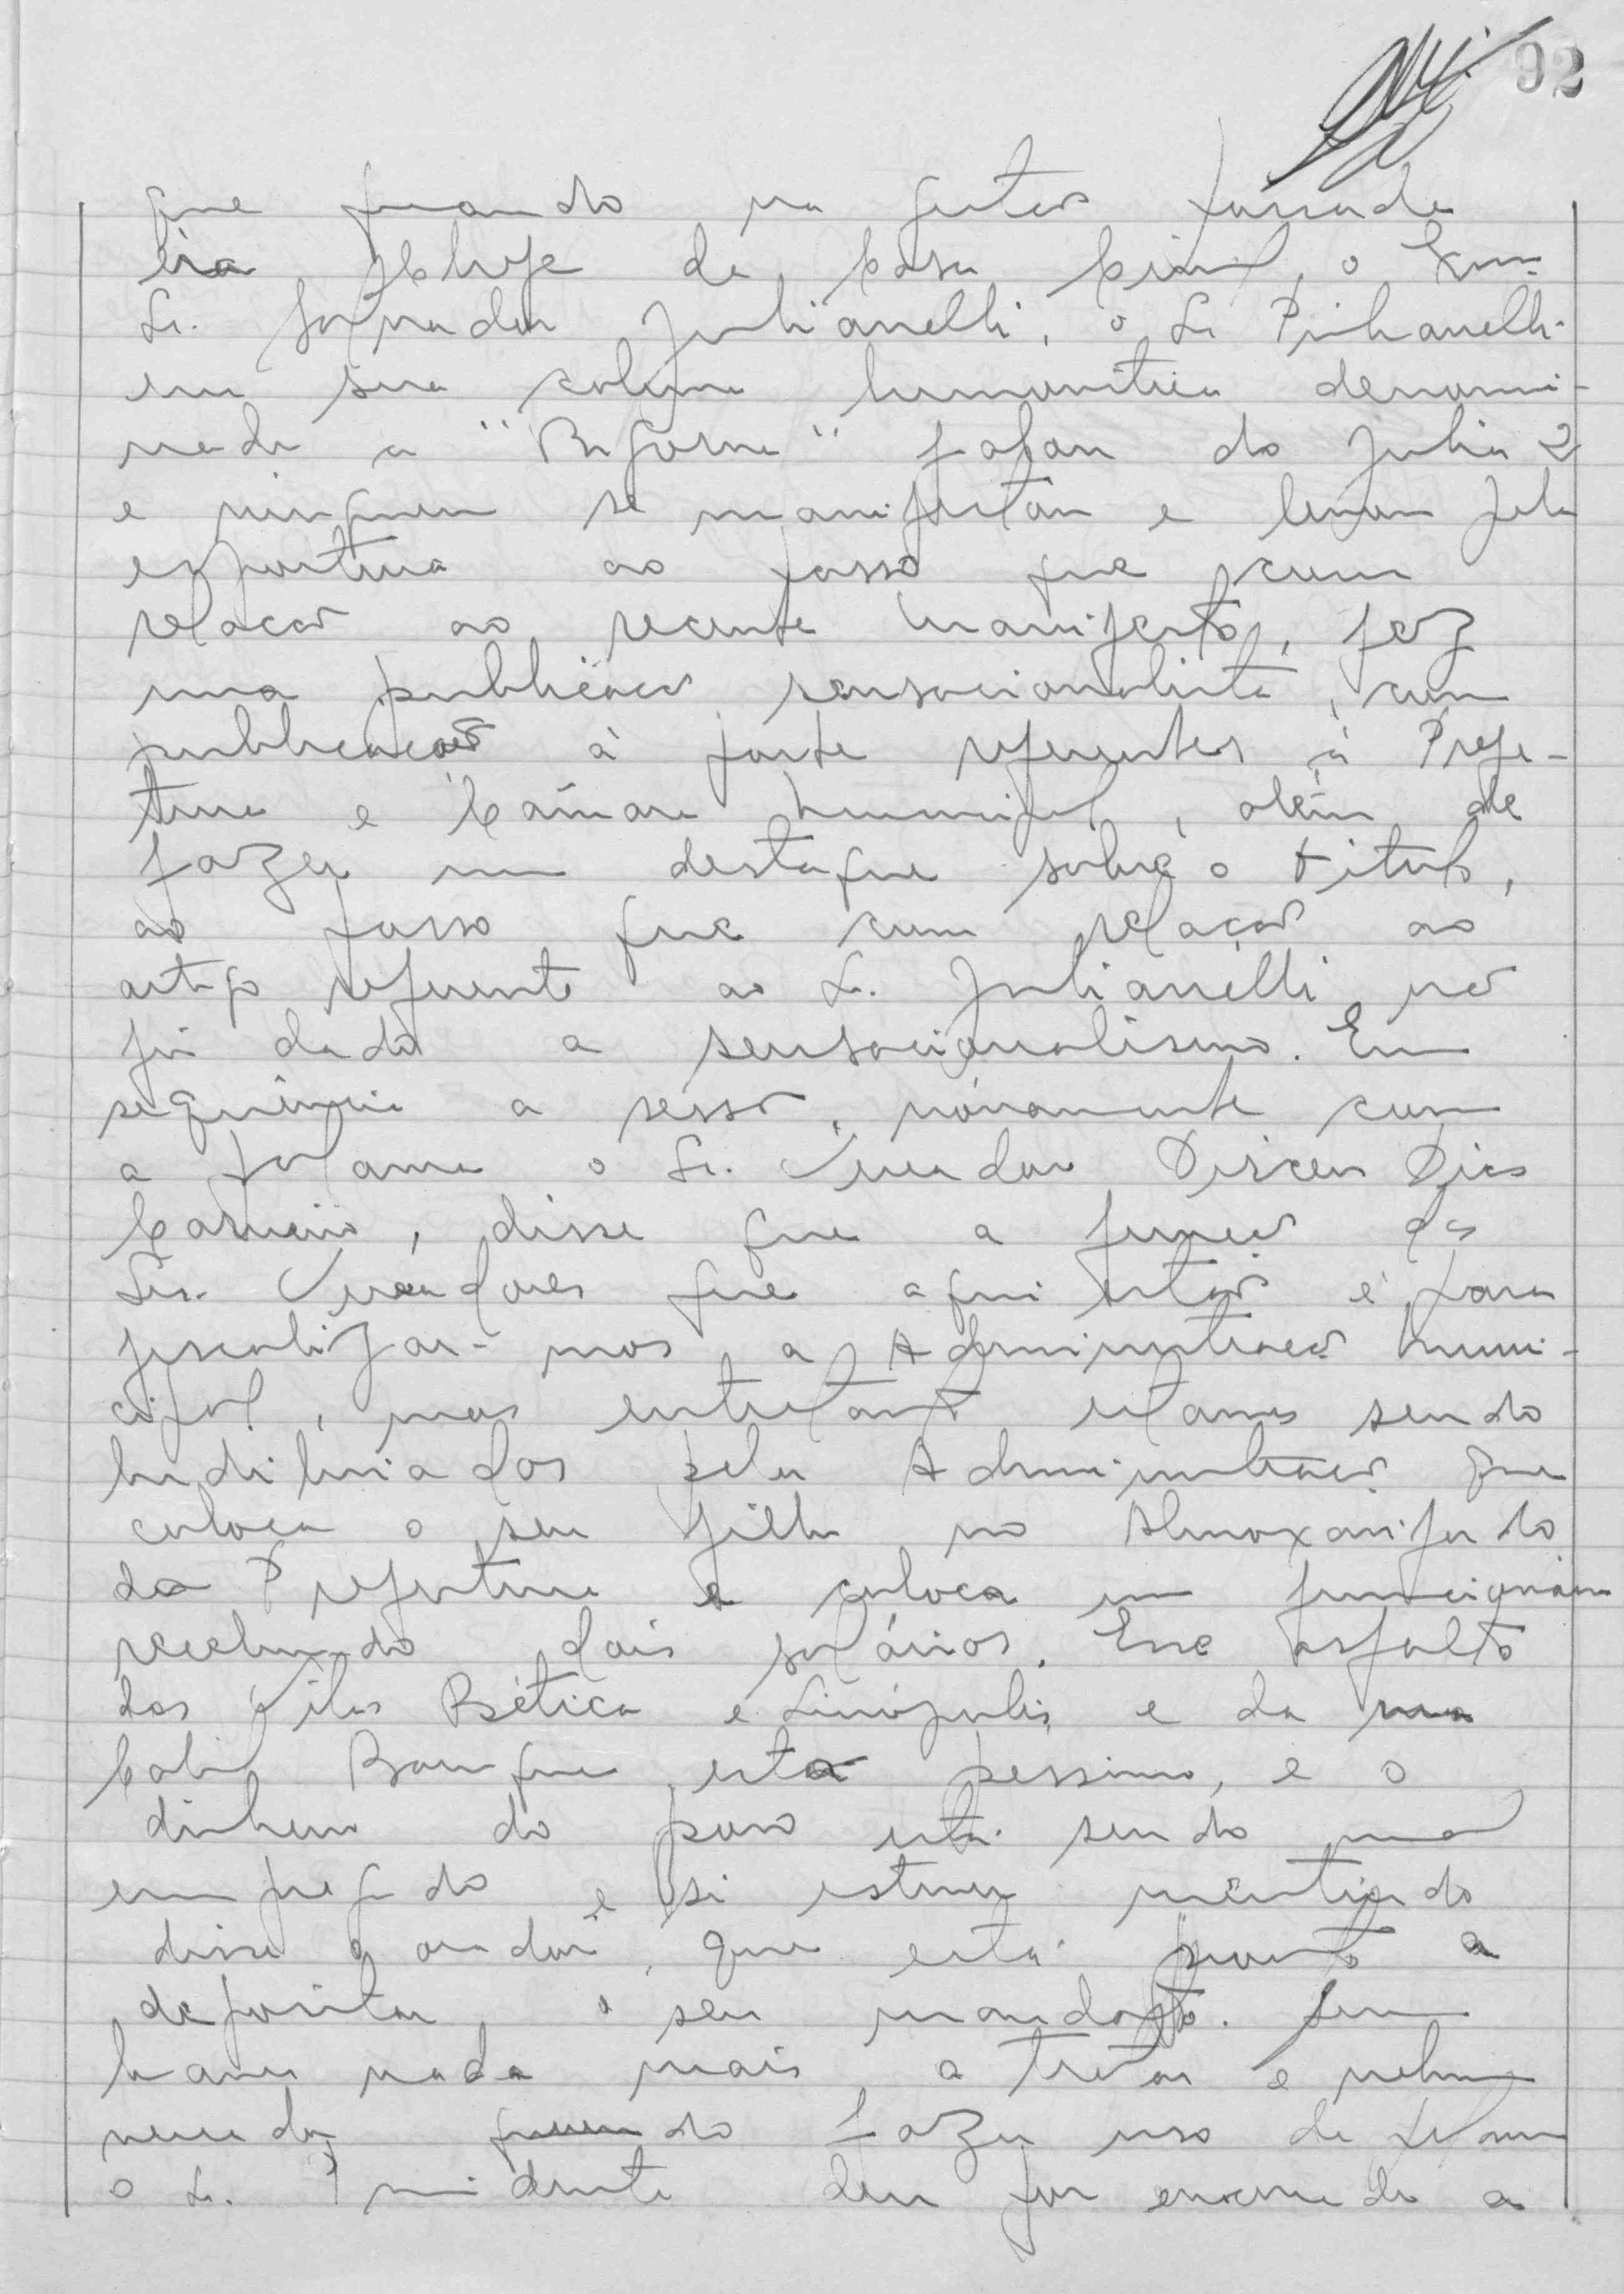 92
que quando na gestão passada
era chefe da Casa Civil, o Exmo
Sr. Salvador Julianelli, o Sr. Pithanelli
em sua coluna humorística denomi-
nada a "Bigorna" falou do Julia 2
e ninguem se manifestou e levou pela
esportiva ao passo que com
relação ao recente manifesto, fez
uma publicação sensacionalista, com
publicações à parte referentes à Prefe-
tura e Câmara Municipal, além de
fazer um destaque sobre o titulo,
ao passo que com relação ao
artigo referente ao Sr. Julianelli não
foi dado a sensacionalismo. Em
seqüência a sessão, nóvamente com
a palavra o Sr. Vereador Dirceu Dias
Carneiro, disse que a função dos
Srs. Vereadores que aqui estão é para
fiscalizar-mos a Administração Muni-
cipal, mas entretanto estamos sendo
ludibriados pela Administração que
coloca o seu filho no Almoxarifado
da Prefeitura e coloca um funcionário
recebendo dois salários. Esse asfalto
das Vilas Bética e Linópolis e da rua
Cabil Bourque está pessimo, e o
dinheiro do povo está sendo mal
empregado e si estiver mentindo
disse o orador, que está pronto a
depositar o seu mandato. Sem
haver nada mais a tratar e nehum
vereador querendo fazer uso da palavra
o Sr. Presidente deu por encerrada a